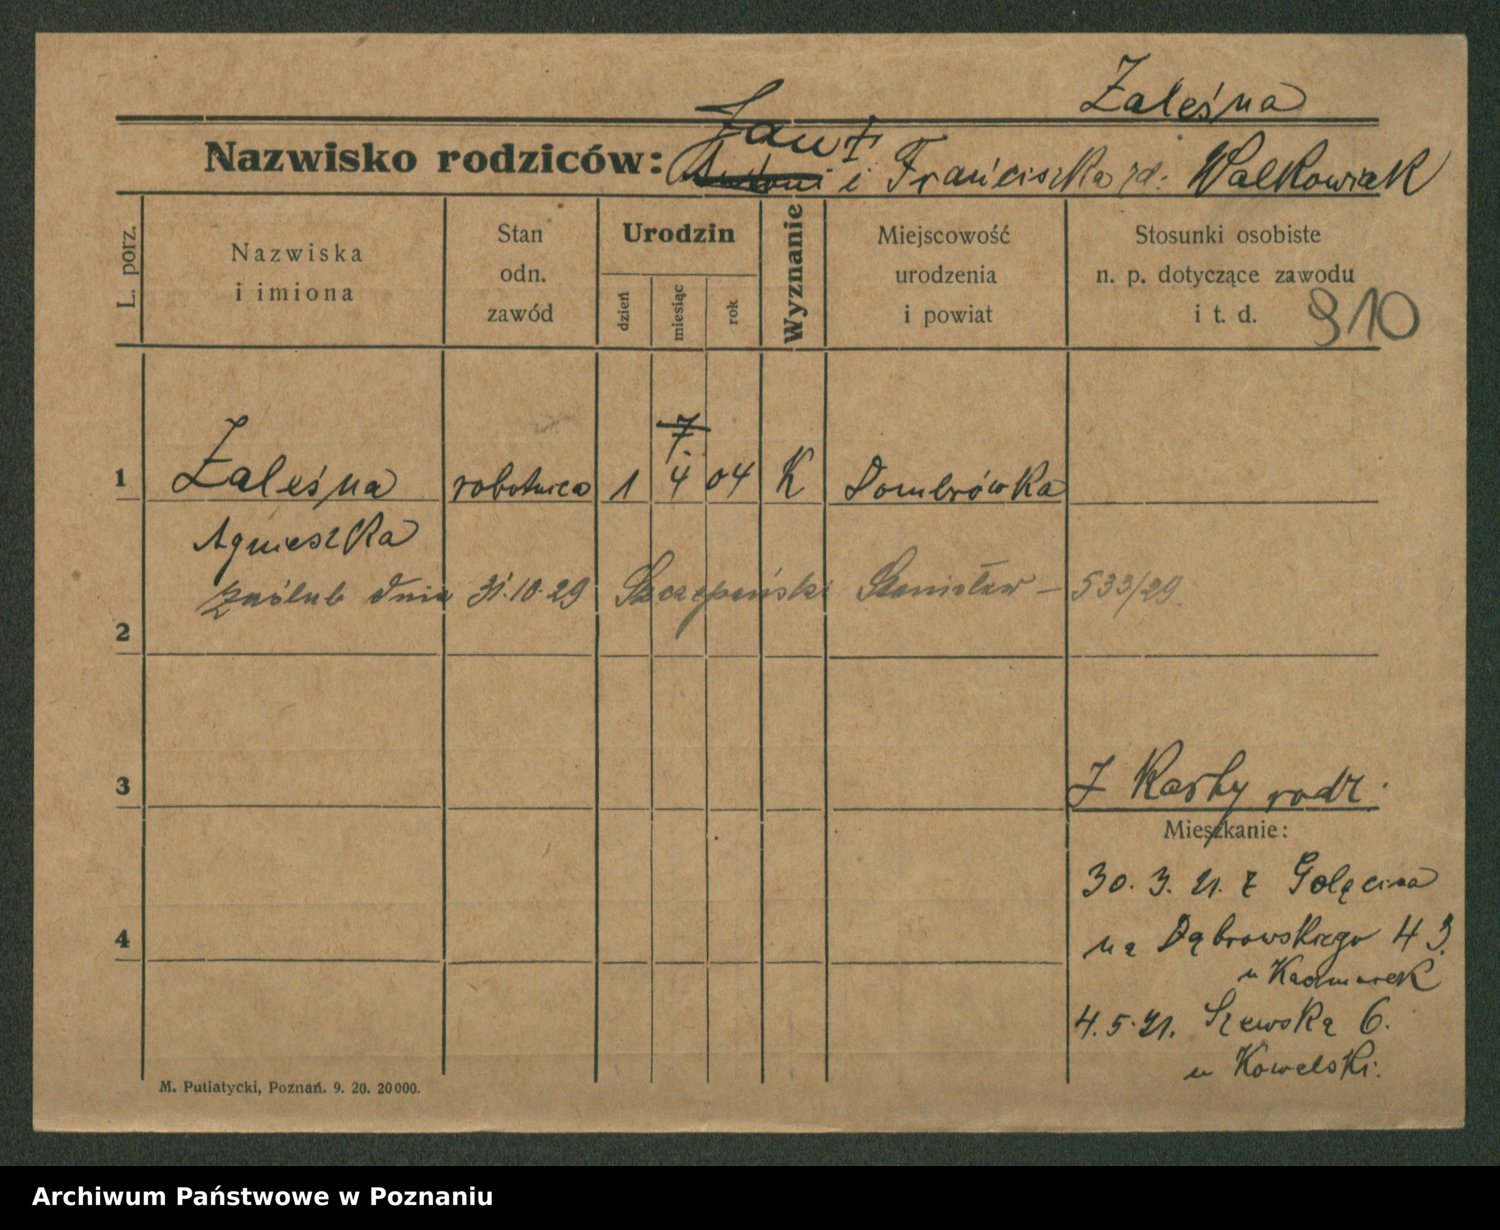 Zaleśna
Nazwisko rodziców: Jan † i Franciszka rd: Walkowiak
L. porz.
Nazwiska
i imiona
Stan
odn.
zawód
Urodzin
dzień
miesiąc
rok
Wyznanie
Miejscowość
urodzenia
i powiat
Stosunki osobiste
n. p. dotyczące zawodu
i t. d.
910
7.
1 Zaleśna robotnica 1 4 04 K Dombrówka
Agnieszka
zaślub dnia 31.10.29 Szczepański Stanisław – 533/29.
2
3
Z Karty rodz.
Mieszkanie:
30. 3. 21. z Golęcina
na Dąbrowskiego 43.
4
u Kaczmarek
4. 5. 21. Szewska 6.
u Kowalski.
M. Putiatycki, Poznań. 9. 20. 20000.
Archiwum Państwowe w Poznaniu